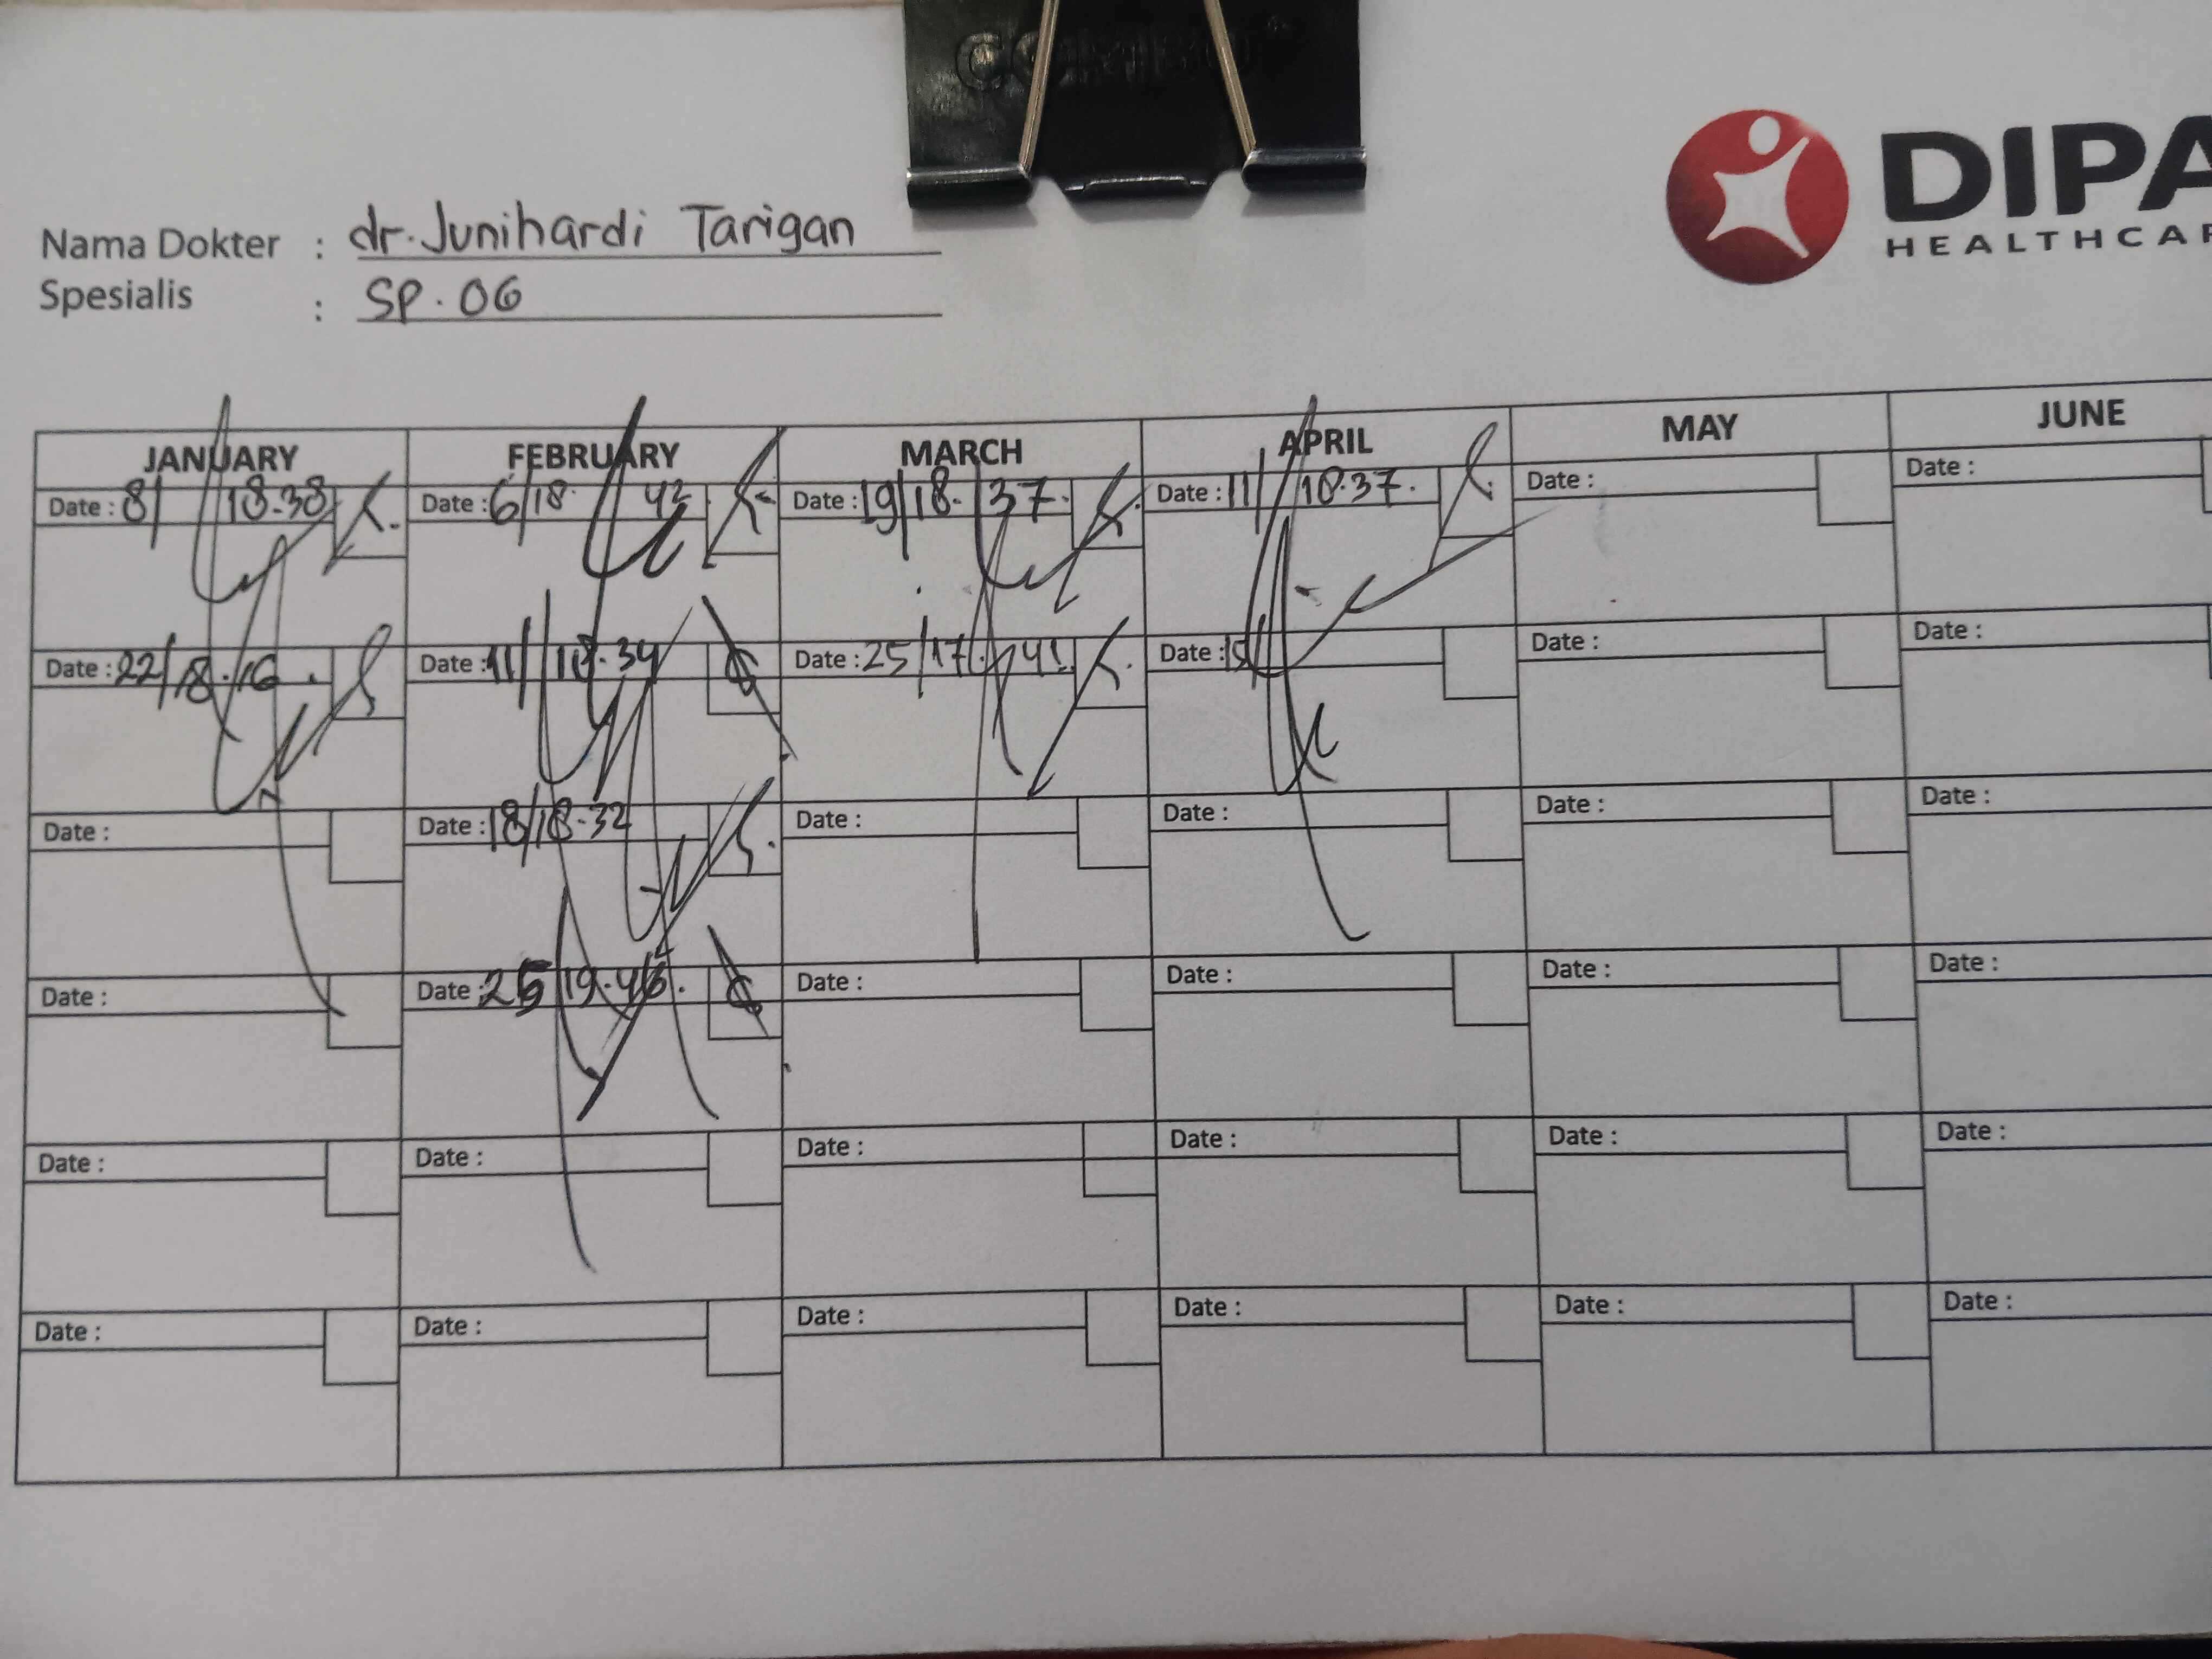 COMBO
DIPA
HEALTHCAR
Nama Dokter : dr. Junihardi Tarigan
Spesialis : SP. OG
JANUARY FEBRUARY MARCH APRIL MAY JUNE
Date : 8/ 18.38 Date : 6/18. 42 Date : 19/18. 37. Date : 11/ 18.37. Date : Date :
Date : 22/18.16. Date : 11/ 18.34 Date : 25/17. 41 Date : Date : Date :
Date : Date : 18/18.32 Date : Date : Date : Date :
Date : Date : 25/19.46. Date : Date : Date : Date :
Date : Date : Date : Date : Date : Date :
Date : Date : Date : Date : Date : Date :